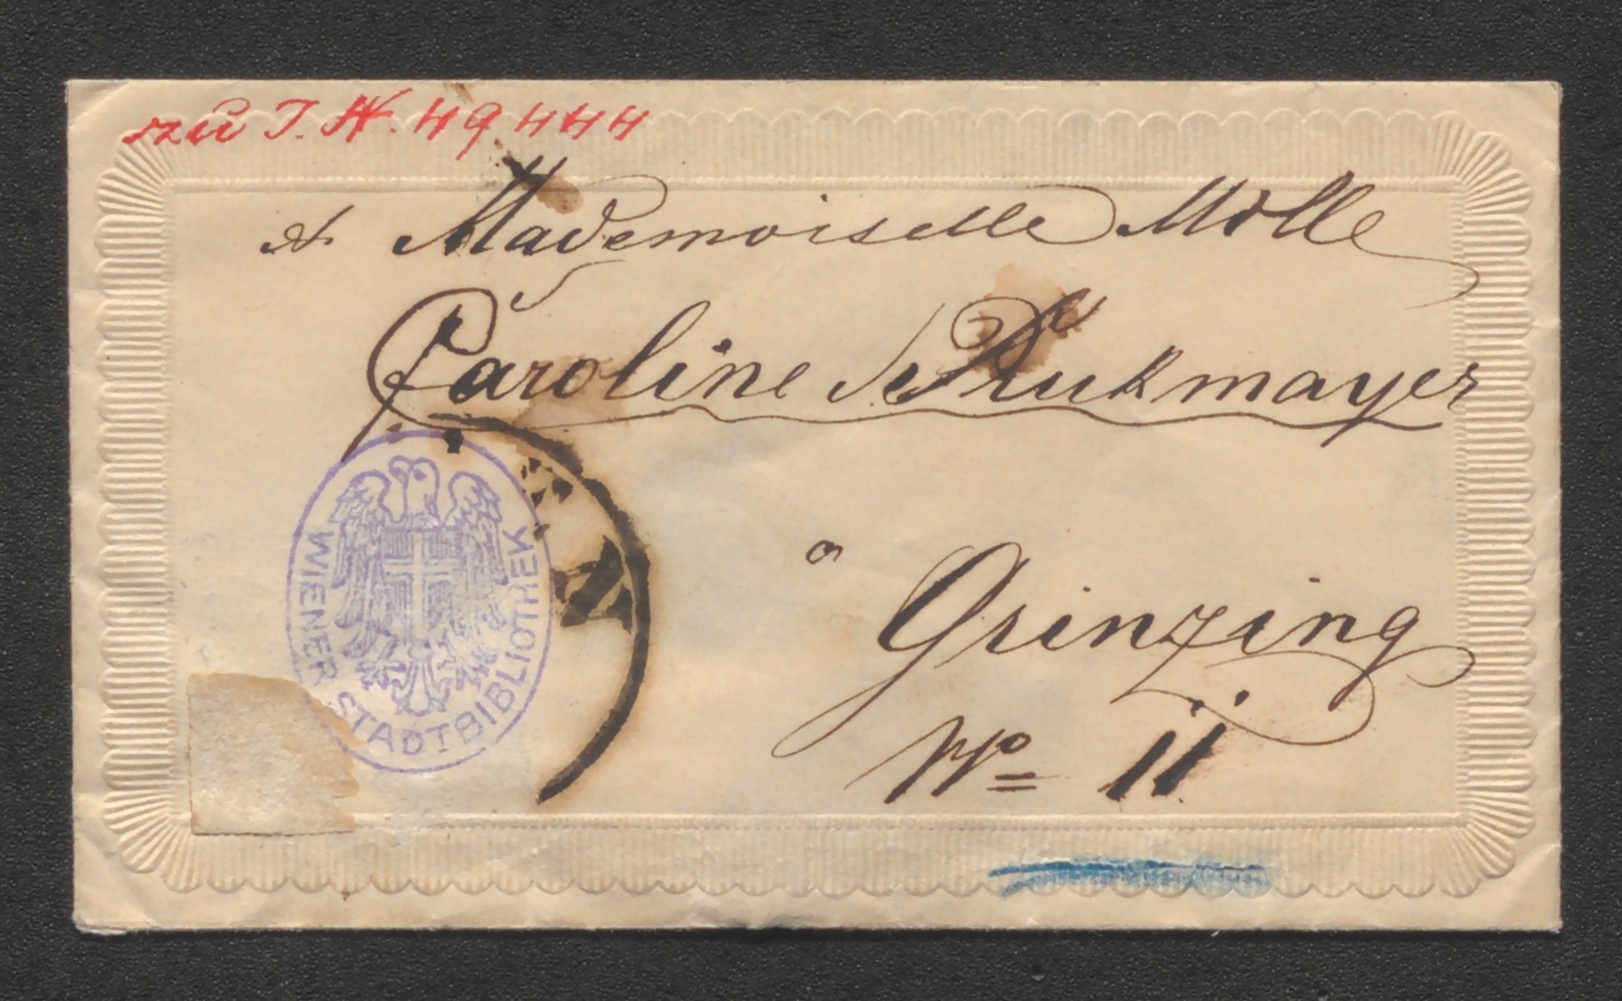 zu I.N. 49444
A Mademoiselle Molle
Caroline
à
Grinzing
No 11
WIENER STADTBIBLIOTHEK